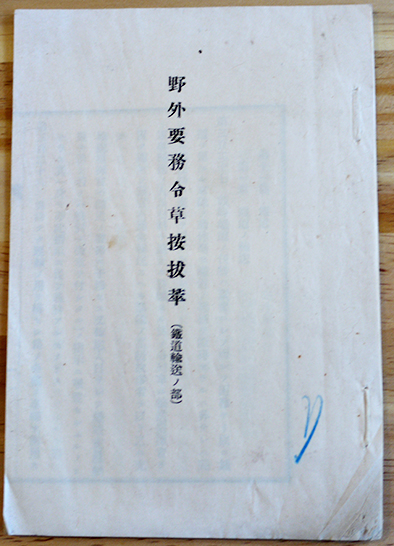 野外要務令草按拔萃（鐵道輸送ノ部）